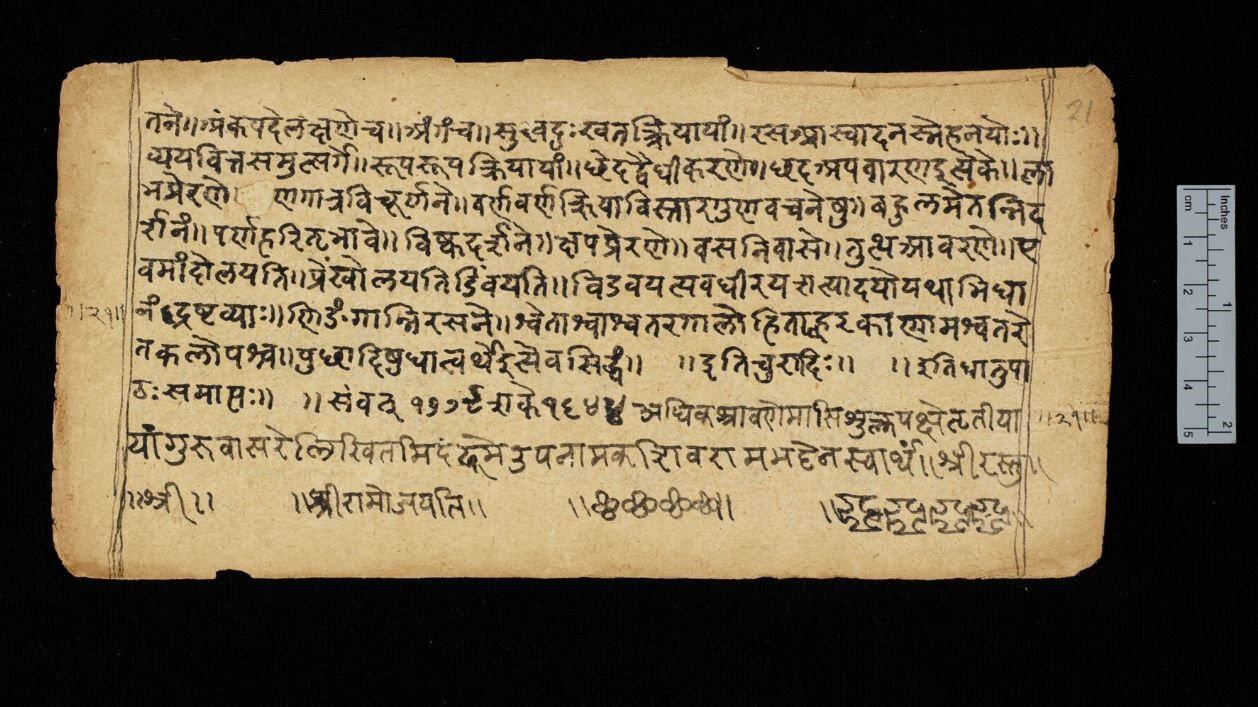 तने॥अंकपदेलक्षणेच॥अंगच॥सुखदुःखतत्क्रियायां॥रसआस्वादनस्नेहनयोः॥
व्ययवित्तसमुत्सर्गे॥रूपरूपक्रियायां॥छेदद्वैधीकरणे॥छदअपवारणइत्येके॥ला
भप्रेरणे व्रणगात्रविचूर्णने॥वर्णवर्णक्रियाविस्तारगुणवचनेषु॥बहुलमेतन्निद
र्शनं॥पर्णहरितभावे॥विष्कदर्शने॥क्षपप्रेरणे॥वसनिवासे॥तुत्थआवरणे॥ए
वमांदोलयति॥प्रेंखोलयतिडिंवयति॥विडंवयत्यवधीरयत्यादयोयथाभिधा
नंद्रष्टव्याः॥णिङंगान्निरसने॥श्वेताश्वाश्वतरगालोहिताह्वरकाणामश्वतरे
तकलोपश्च॥पुछादिषुधात्वर्थेइत्येवसिद्धं॥ ॥इतिचुरादिः॥ ॥इतिधातुपा
ठःसमाप्तः॥ ॥संवत् १७७९शके१६४४अधिकश्रावणेमासिशुक्लपक्षेतृतीया
यांगुरूवासरेलिखितमिदं उपनामकशिवरामभट्टेनस्वार्थं॥श्रीरस्तु॥
॥श्री॥ ॥श्रीरामोजयति॥ ॥छ॥छ॥छ॥छ॥
॥२१॥
॥२१॥
21
Inches
cm
1
2
3
4
5
1
2